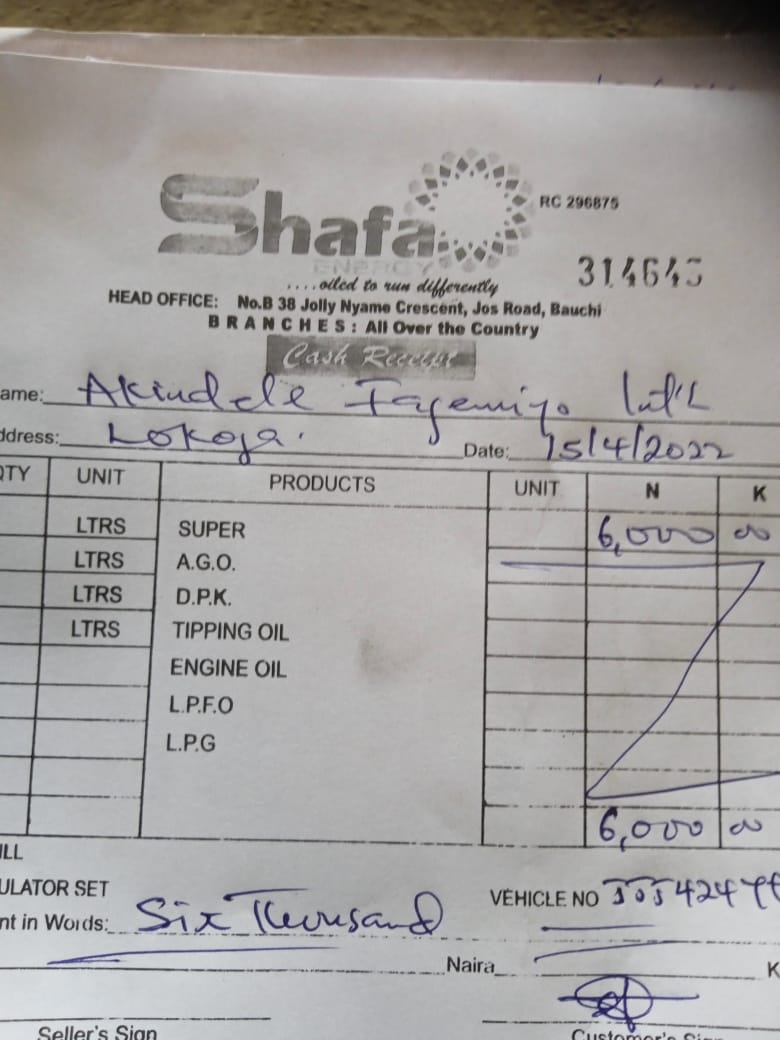 Shafa
RC 296875
ENERGY
....oiled to run differently
HEAD OFFICE: No.B 38 Jolly Nyame Crescent, Jos Road, Bauchi
BRANCHES: All Over the Country
Cash Receipt
ame: Akindele Int'L
ddress: Lokoja. Date: 15/4/2022
QTY UNIT PRODUCTS UNIT N K
LTRS SUPER 6,000 00
LTRS A.G.O.
LTRS D.P.K.
LTRS TIPPING OIL
ENGINE OIL
L.P.F.O
L.P.G
6,000 00
ULATOR SET
VEHICLE NO
nt in Words: Six Thousand
Naira K
Seller's Sign Customer's Sign